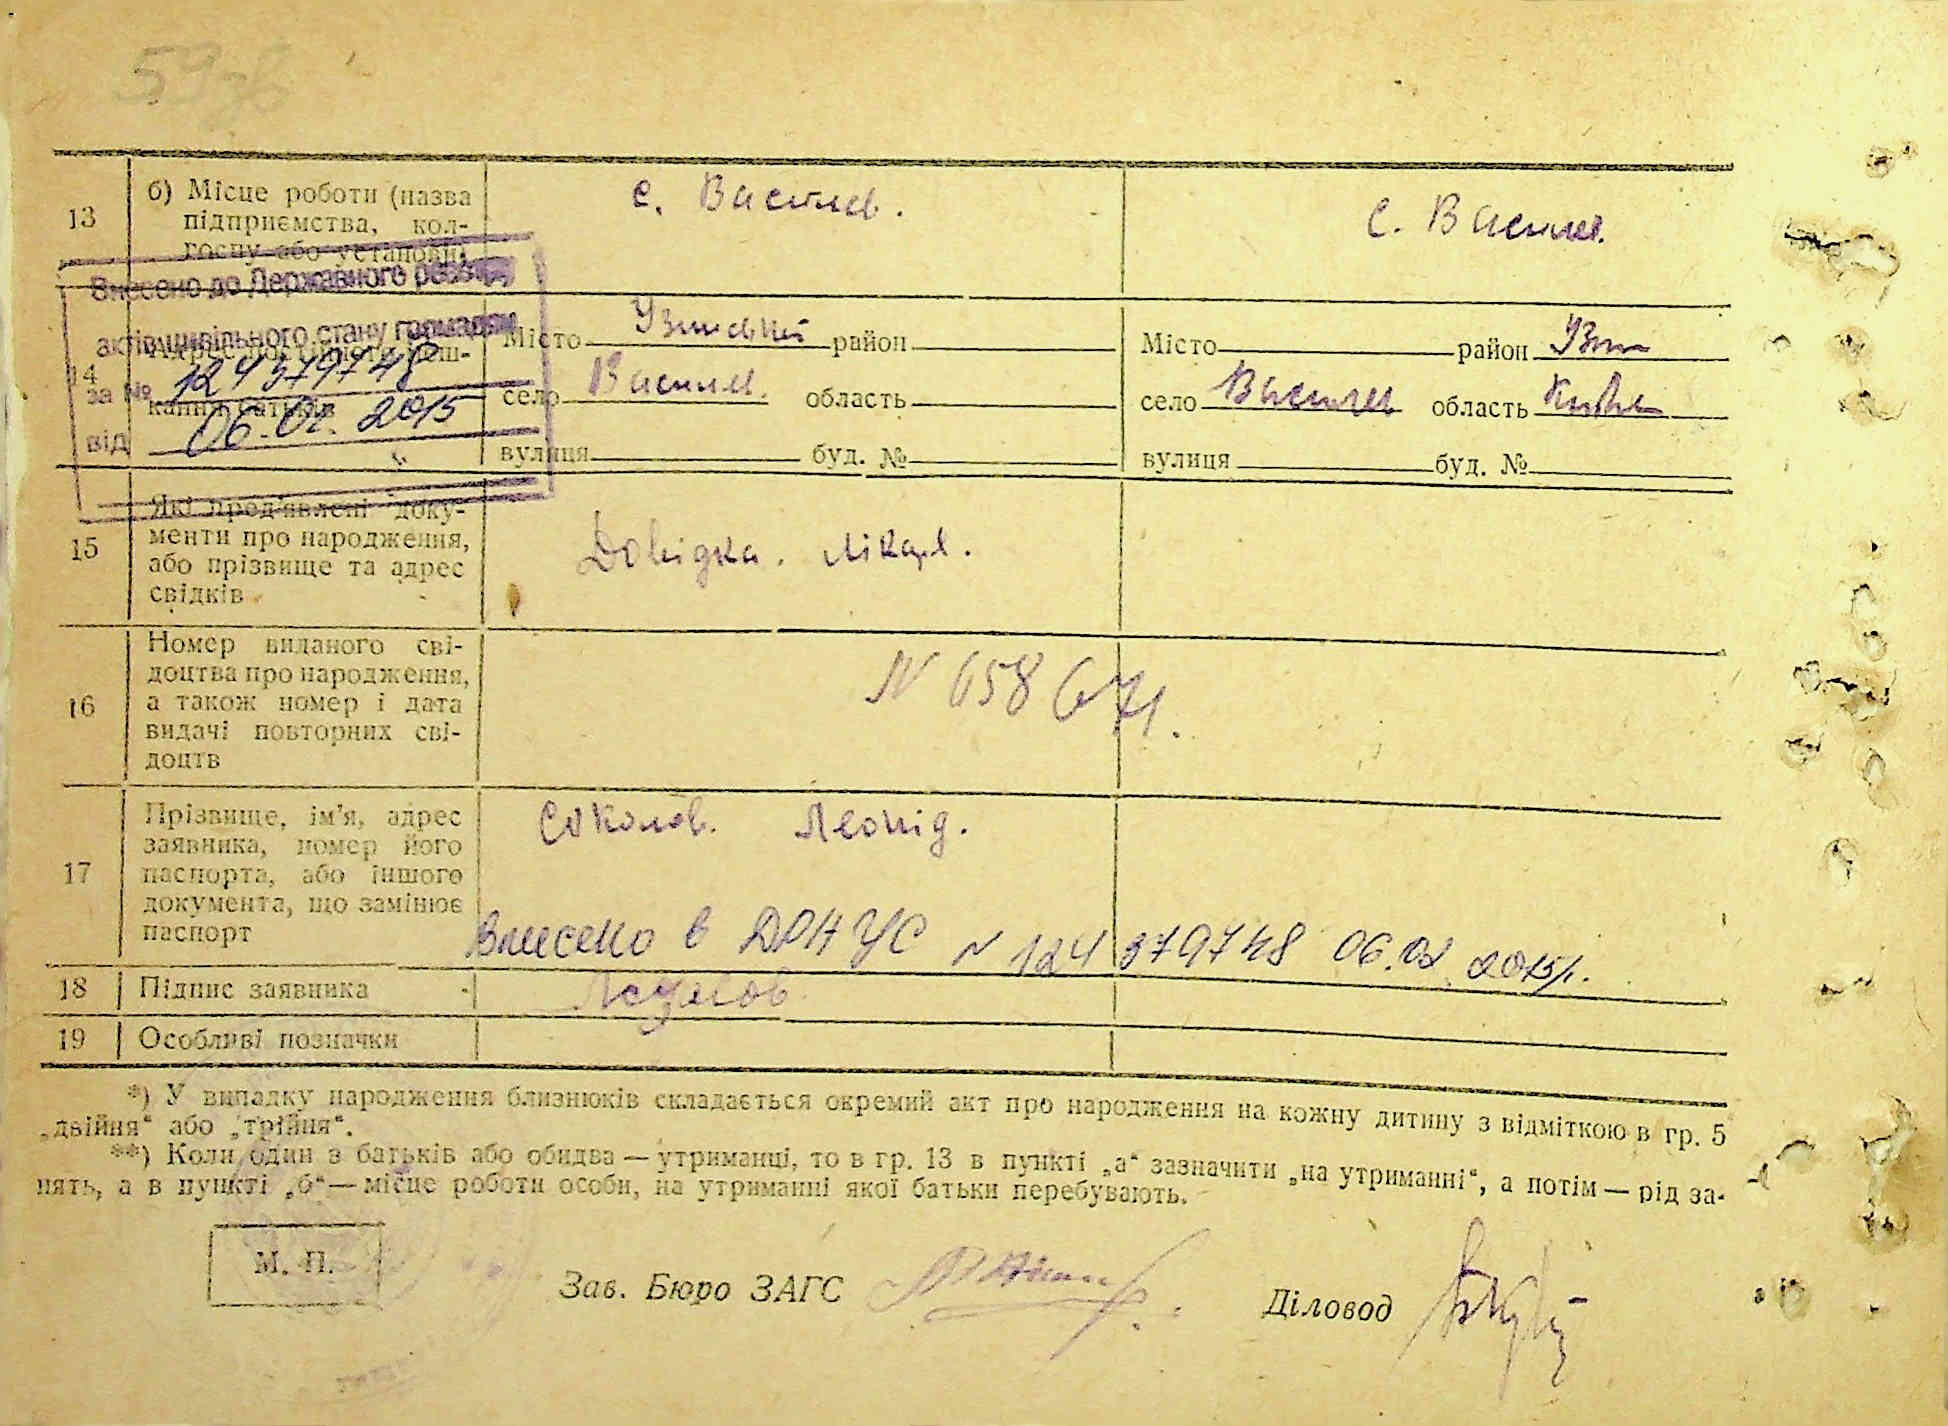 59зв
13 б) Місце роботи (назва підприємства, кол-госпу або установи) с. Василев. с. Василев.
Внесено до Державного реєстру
актів цивільного стану громадян
за № 124379748
від 06.02.2015
14 Адрес постійного меш-кання батьків
Місто Узинський район
село Василев. область
вулиця буд. №
Місто район Узин
село Василев область Київ
вулиця буд. №
15 Які пред'явлені доку-
менти про народження,
або прізвище та адрес
свідків
Довідка. лікаря.
16 Номер виданого сві-
доцтва про народження,
а також номер і дата
видачі повторних сві-
доцтв
N 658671.
17 Прізвище, ім'я, адрес
заявника, номер його
паспорта, або іншого
документа, що замінює
паспорт
Соколов. Леонід.
Внесено в ДРАЦС N 124379748 06.02.2015р.
18 Підпис заявника
19 Особливі позначки
*) У випадку народження близнюків складається окремий акт про народження на кожну дитину з відміткою в гр. 5
„двійня“ або „трійня“.
**) Коли один з батьків або обидва — утриманці, то в гр. 13 в пункті „а“ зазначити „на утриманні“, а потім — рід за-
нять, а в пункті „б“ — місце роботи особи, на утриманні якої батьки перебувають.
М. П.
Зав. Бюро ЗАГС
Діловод